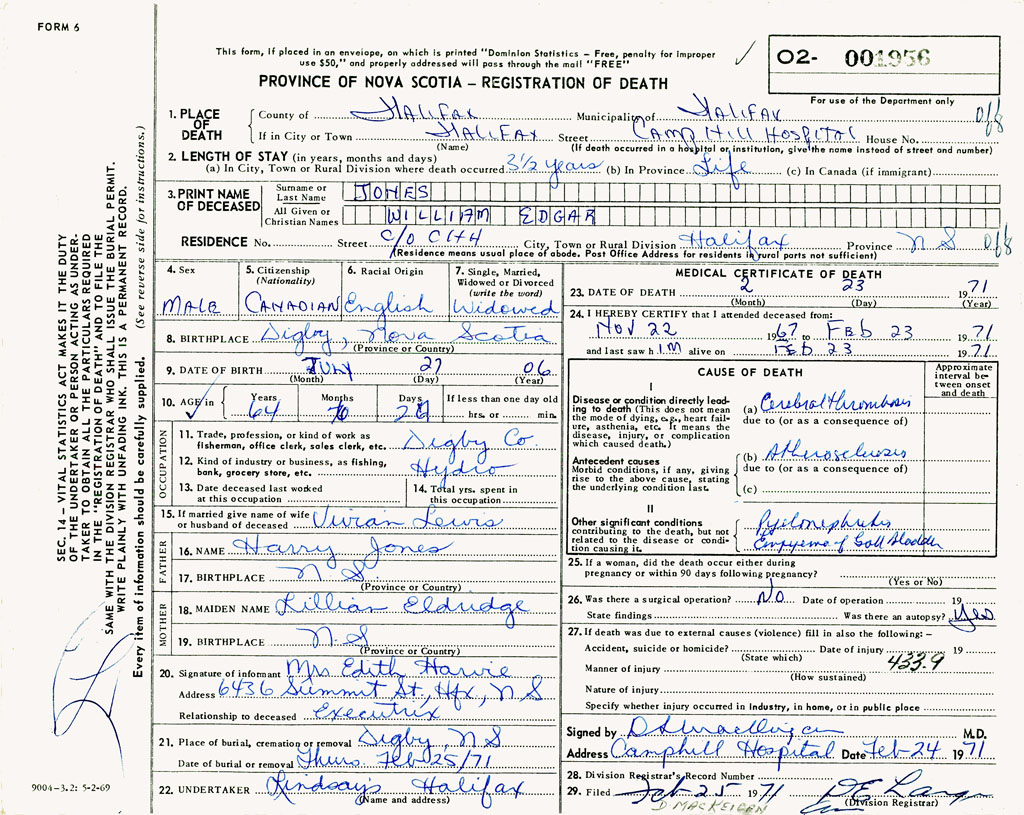 FORM 6
This form, if placed in an envelope, on which is printed "Dominion Statistics – Free, penalty for improper
use $50," and properly addressed will pass through the mail "FREE"
PROVINCE OF NOVA SCOTIA – REGISTRATION OF DEATH
02- 001956
For use of the Department only
1. PLACE OF DEATH
County of HALIFAX Municipality of HALIFAX
If in City or Town HALIFAX Street CAMP HILL HOSPITAL House No.
(Name) (If death occurred in a hospital or institution, give the name instead of street and number)
2. LENGTH OF STAY (in years, months and days)
(a) In City, Town or Rural Division where death occurred 3 1/2 years (b) In Province Life (c) In Canada (if immigrant)
3. PRINT NAME OF DECEASED
Surname or Last Name JONES
All Given or Christian Names WILLIAM EDGAR
RESIDENCE No. Street C/O CHH City, Town or Rural Division Halifax Province N S
(Residence means usual place of abode. Post Office Address for residents in rural parts not sufficient)
4. Sex MALE
5. Citizenship (Nationality) CANADIAN
6. Racial Origin English
7. Single, Married, Widowed or Divorced (write the word) Widowed
8. BIRTHPLACE Digby, Nova Scotia
(Province or Country)
9. DATE OF BIRTH JULY 27 06
(Month) (Day) (Year)
10. AGE in Years Months Days If less than one day old
64 hrs. or min.
OCCUPATION
11. Trade, profession, or kind of work as fisherman, office clerk, sales clerk, etc. Digby Co.
12. Kind of industry or business, as fishing, bank, grocery store, etc. Hydro
13. Date deceased last worked at this occupation
14. Total yrs. spent in this occupation
15. If married give name of wife or husband of deceased Vivian Lewis
FATHER
16. NAME Harry Jones
17. BIRTHPLACE N S
(Province or Country)
MOTHER
18. MAIDEN NAME Lillian Eldridge
19. BIRTHPLACE N. S
(Province or Country)
20. Signature of informant Mrs Edith Harvie
Address 6436 Summit St, Hfx, N S
Relationship to deceased Executrix
21. Place of burial, cremation or removal Digby, N S
Date of burial or removal Thurs. Feb 25/71
22. UNDERTAKER Lindsay's Halifax
(Name and address)
MEDICAL CERTIFICATE OF DEATH
23. DATE OF DEATH 2 23 1971
(Month) (Day) (Year)
24. I HEREBY CERTIFY that I attended deceased from:
Nov 22 1967 to FEB 23 1971
and last saw h IM alive on FEB 23 1971
CAUSE OF DEATH
Approximate interval between onset and death
I
Disease or condition directly leading to death (This does not mean the mode of dying, e.g., heart failure, asthenia, etc. It means the disease, injury, or complication which caused death.)
(a) Cerebral thrombosis
due to (or as a consequence of)
Antecedent causes
Morbid conditions, if any, giving rise to the above cause, stating the underlying condition last.
(b) Atherosclerosis
due to (or as a consequence of)
(c)
II
Other significant conditions contributing to the death, but not related to the disease or condition causing it.
Pyelonephritis
Empyema of Gall Bladder
25. If a woman, did the death occur either during pregnancy or within 90 days following pregnancy?
(Yes or No)
26. Was there a surgical operation? NO Date of operation 19
State findings Was there an autopsy? Yes
27. If death was due to external causes (violence) fill in also the following: –
Accident, suicide or homicide? Date of injury 19
(State which) 433.9
Manner of injury
(How sustained)
Nature of injury
Specify whether injury occurred in industry, in home, or in public place
Signed by M.D.
Address Camphill Hospital Date Feb 24 1971
28. Division Registrar's Record Number
29. Filed Feb 25 1971
(Division Registrar)
D MACKEIGAN
SEC. 14 – VITAL STATISTICS ACT MAKES IT THE DUTY
OF THE UNDERTAKER OR PERSON ACTING AS UNDER-
TAKER TO OBTAIN ALL THE PARTICULARS REQUIRED
IN THE "REGISTRATION OF DEATH" AND TO FILE THE
SAME WITH THE DIVISION REGISTRAR WHO SHALL ISSUE THE BURIAL PERMIT.
WRITE PLAINLY WITH UNFADING INK. THIS IS A PERMANENT RECORD.
Every item of information should be carefully supplied. (See reverse side for instructions.)
9004-3.2: 5-2-69